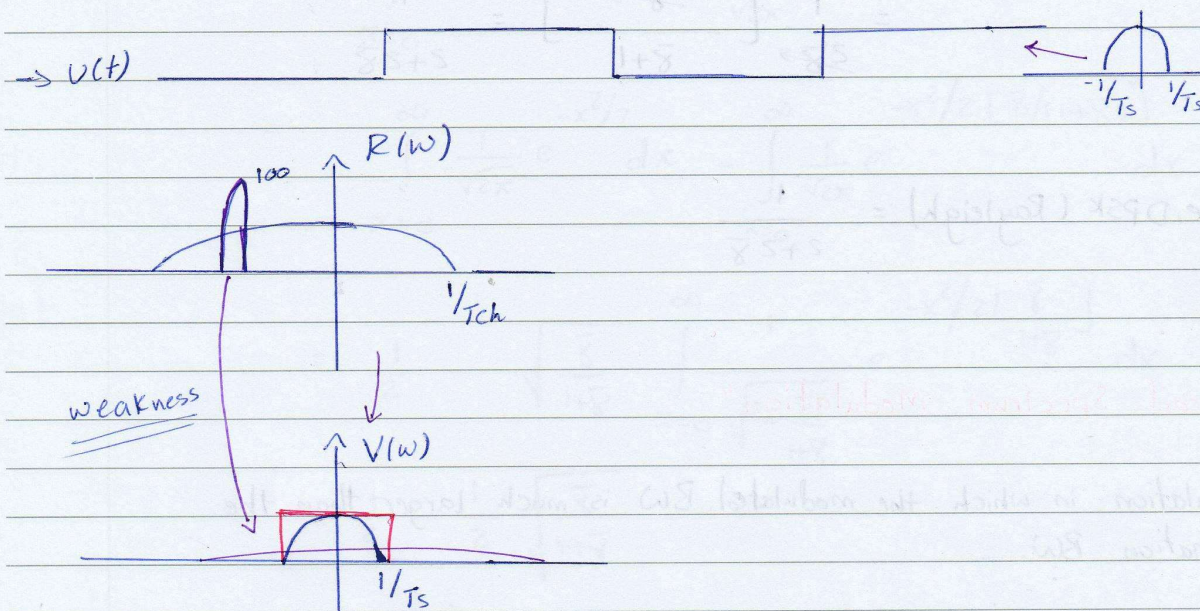 → U(t)
-1/Ts 1/Ts
R(w)
100
1/Tch
weakness
V(w)
1/Ts